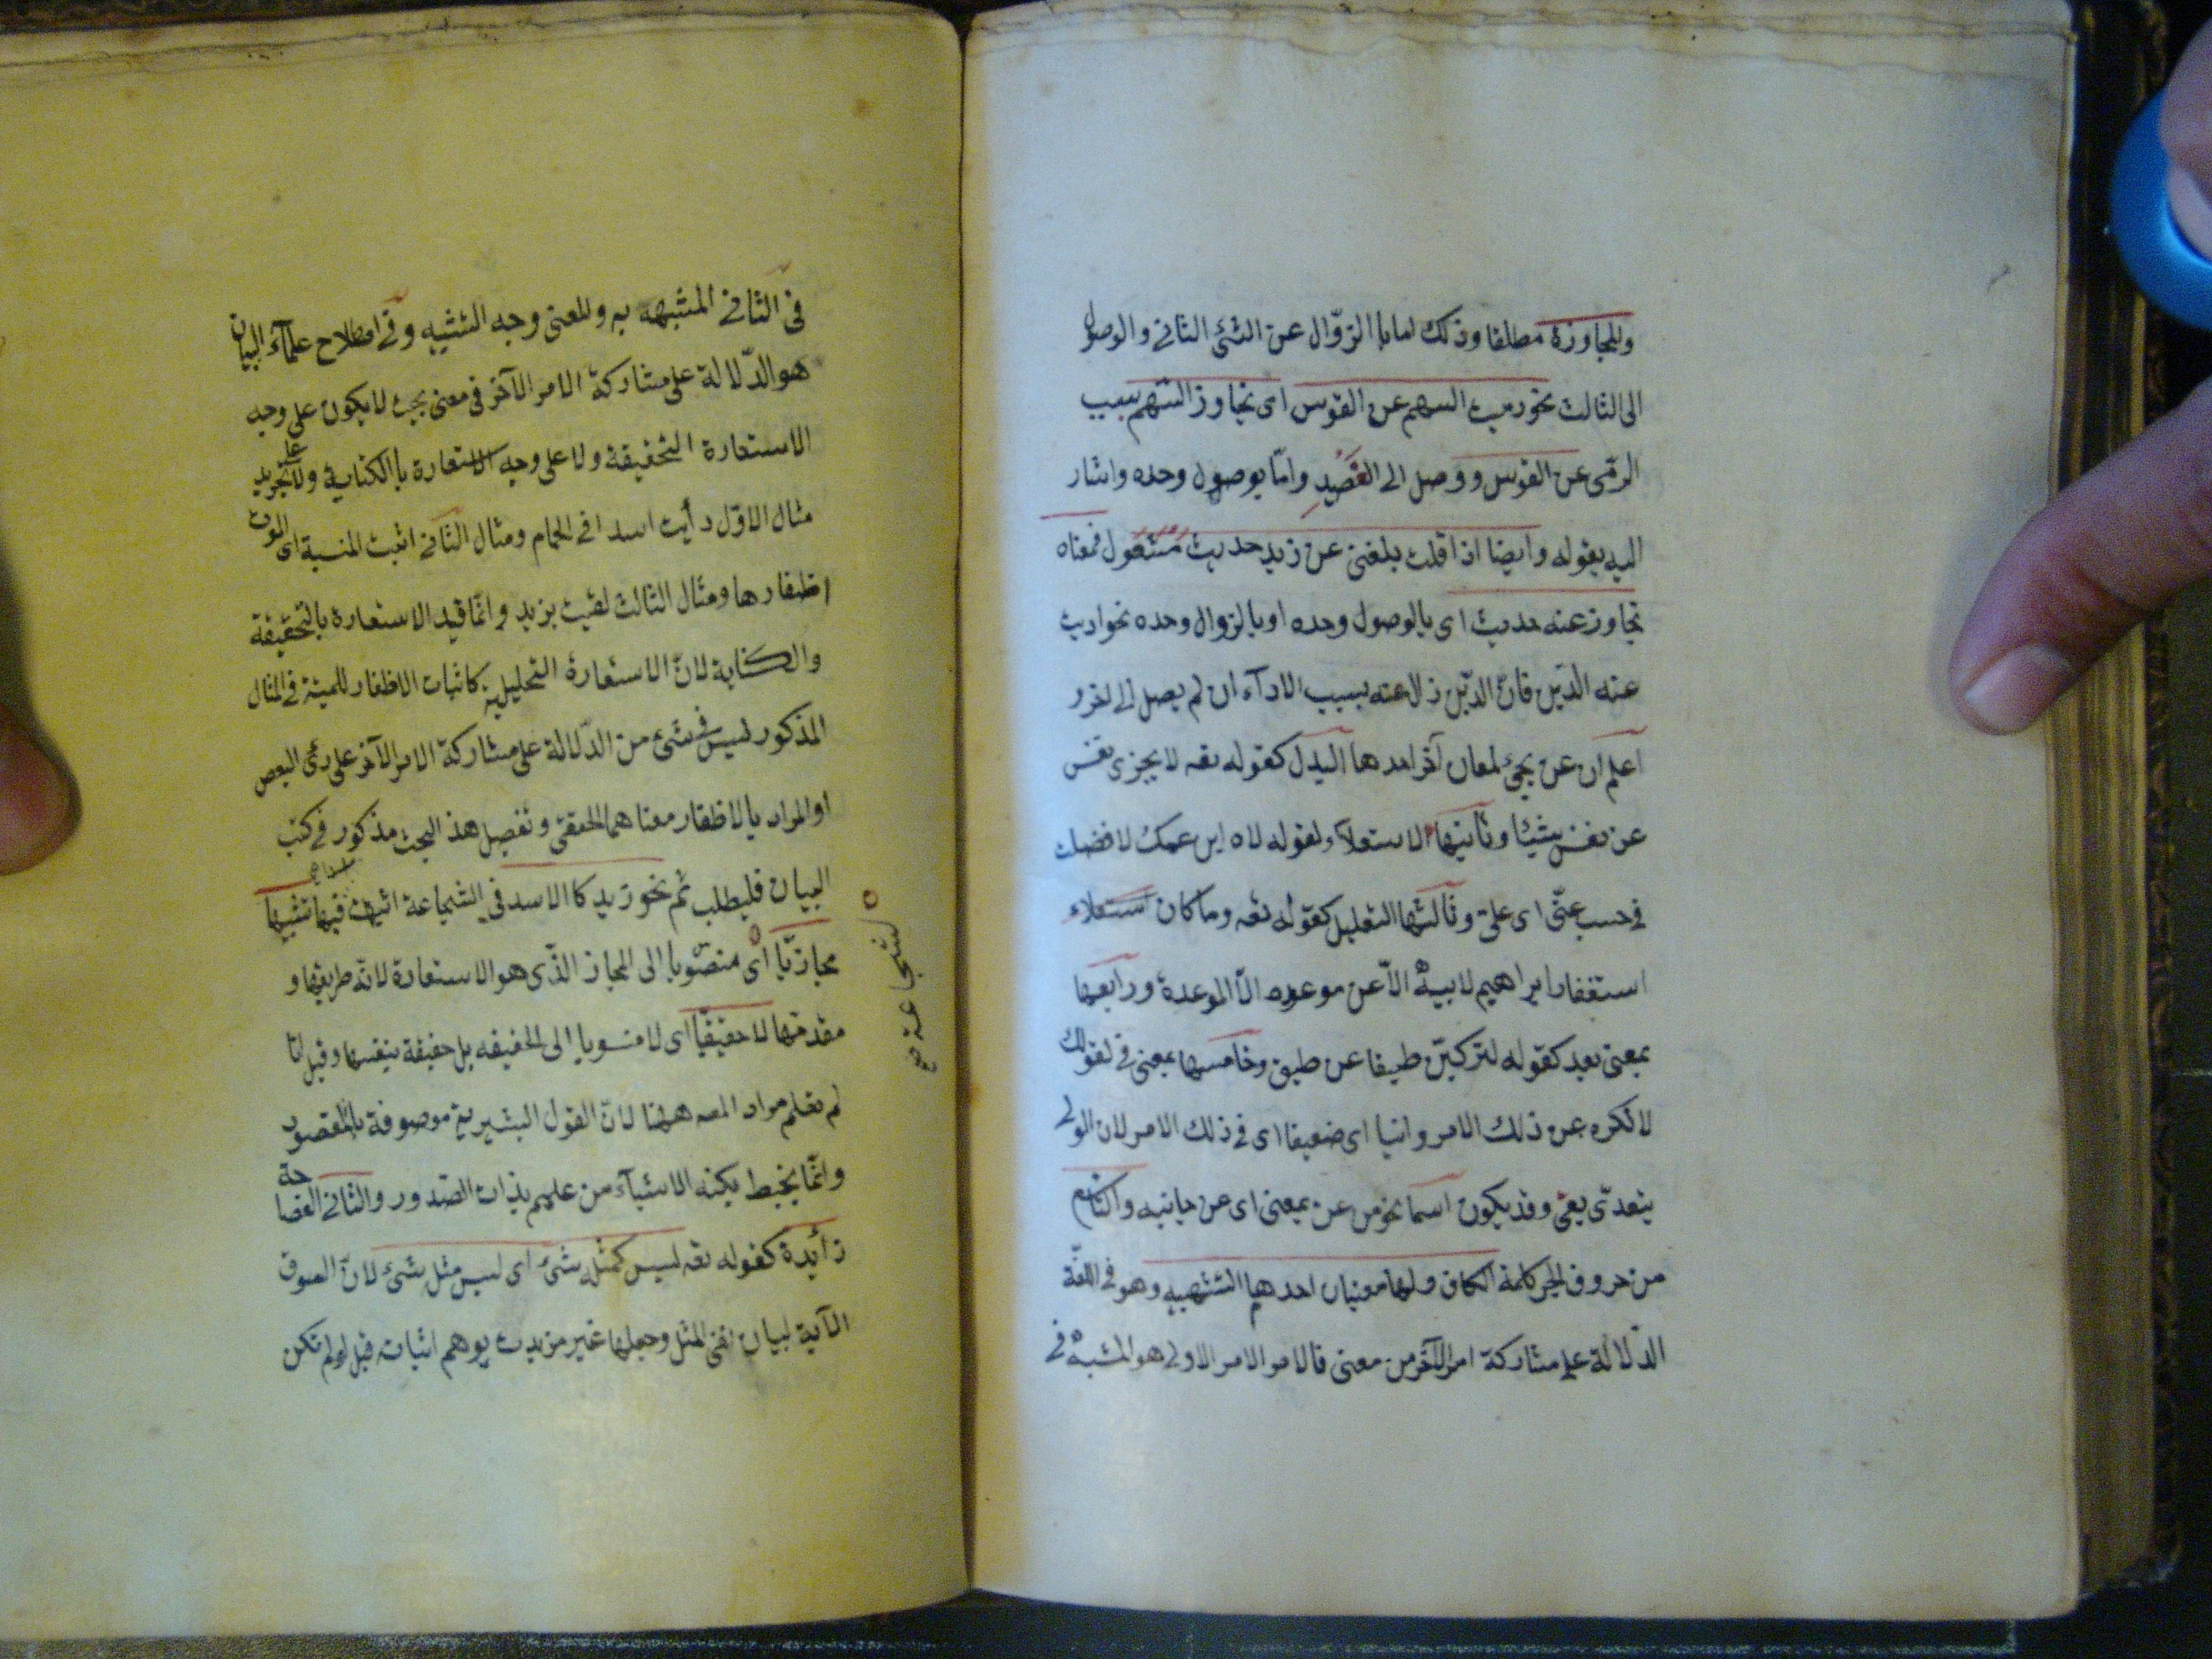 وللمجاوزة مطلقا وذلك اما بالزوال عن الشئ الثاني والوصول
الى الثالث نحو رميت السهم عن القوس اى تجاوز السهم بسبب
الرمى عن القوس ووصل الى القصيد واما بوصول وحده واشار
اليه بقوله وايضا اذا قلت بلغنى عن زيد حديث فمعناه
تجاوز عنه حديث اى بالوصول وحده او بالزوال وحده نحو اديت
عنه الدين فان الدين زال عنه بسبب الادآء ان لم يصل الى اخر
اعلم ان عن يجئ لمعان آخر احدها البدل كقوله تعه لا يجزى نفس
عن نفس شيئا وثانيها الاستعلآء لقوله لاه ابن عمك لا فضلت
في حسب عنّى اى علىّ وثالثها التعليل كقوله تعه وما كان استعلاء
استغفار ابراهيم لابيه الّا عن موعده الّا الموعدة ورابعها
بمعنى بعد كقوله لتركبنّ طبقا عن طبق وخامسها بمعنى في لقولك
لا تكره عن ذلك الامر وانيا اى ضعيفا اى في ذلك الامر لان الونى
يتعدّى بفى وقد يكون اسما نحو من عن يمينى اى من جانبه والتاسع
من حروف الجر كلمة الكاف ولها معنيان احدهم التشبيه وهو في اللغة
الدّلالة على مشاركة امر الآخر من معنى فالامر الامر الاولى هو المشبه في
في الثاني المشبهه به وللمعنى وجه التشبيه وفي اصطلاح علمآء البيان
هو الدّلالة على مشاركة الامر الآخر في معنى بحيث لا يكون على وجه
الاستعارة التحقيقة ولا على وجه الاستعارة بالكناية ولا على تجريد
مثال الاوّل رأيت اسدا في الحمام ومثال الثاني اثبت المنسبة اى الموت
اظفارها ومثال الثالث لقيت بزيد وانّما قيد الاستعارة بالتحقيقة
والكناية لانّ الاستعارة التحليلية كاثبات الاظفار للمية في المثال
المذكور ليس في شئ من الدّلالة على مشاركة الامر الآخر على رئى البعص
او المراد بالاظفار معناهما الحقيقى وتفصيل هذ البحث مذكور في كتب
البيان فليطلب ثم نحو زيد كا الاسد في الشجاعة اثبت فيها تشبيها
مجازيّا اى منصّوبا الى المجاز الذّى هو الاستعارة لانّه طريقها و
مقدمتها لا حقيقيّا اى لا منسوبا الى الحقيقه بل حقيقة بنفسها وقيل انا
لم نعلم مراد المصه ههنا لانّ القول البشيرية موصوفة بالقصور
وانّما يحيط بكنه الاشيآء من عليم بذات الصّدور والثاني الفصاحة
زائدة كقوله تعه ليس كمثله شئ اى ليس مثل شئ لانّ السوق
الآية لبيان نفى المثل وجعلها غير مزيدت يوهم اثباته قيل لو لم تكن
الشجاعة صح